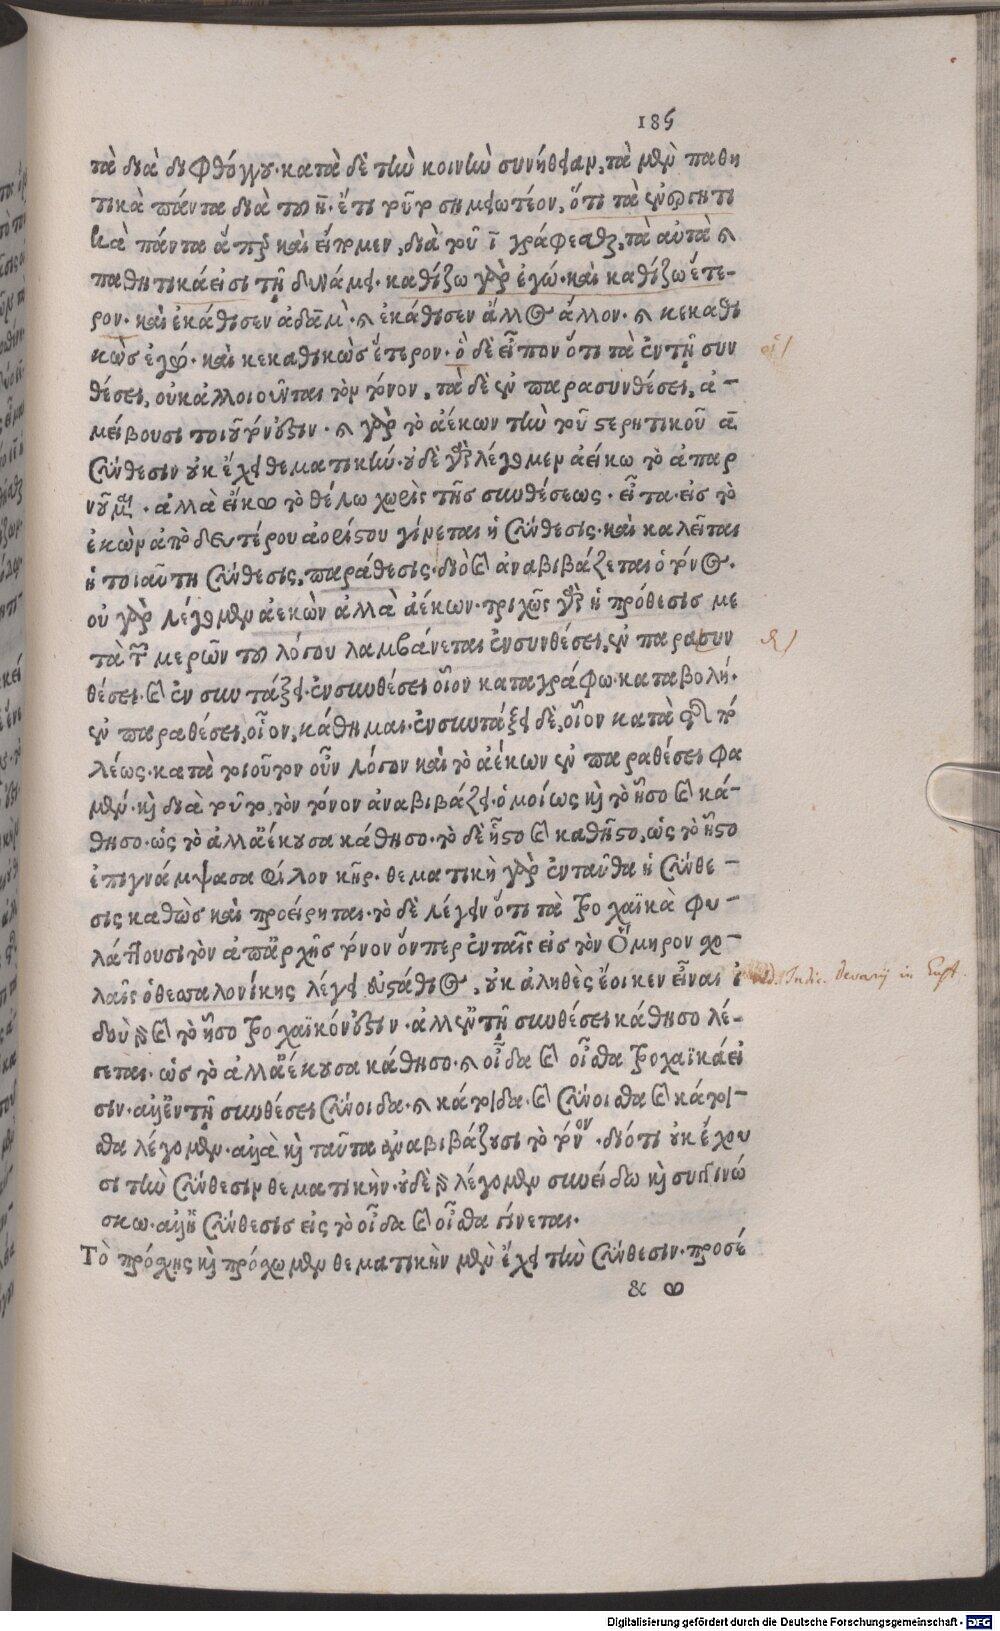 185
τὰ διὰ διφθόγγου· κατὰ δὲ τὴν κοινὴν συνήθειαν, τὰ μὲν παθη
τικὰ πάντα διὰ τοῦ η̄· ἔτι τοῦτο σημειωτέον, ὅτι τὰ ἐνεργητι
κὰ πάντα ἅπερ καὶ εἴπομεν, διὰ τοῦ ῑ γράφεσθαι, τὰ αὐτὰ καὶ
παθητικά εἰσι τῇ δυνάμει· καθίζω γὰρ ἐγώ· καὶ καθίζω ἕτε-
ρον· καὶ ἐκάθισεν ἀδὰμ· καὶ ἐκάθισεν ἄλλος ἄλλον· καὶ κεκαθι
κὼς ἐγώ· καὶ κεκαθικὼς ἕτερον· ὃ δὲ εἶπον ὅτι τὰ ἐν τῇ συν
θέσει, οὐκ ἀλλοιοῦνται τὸν τόνον, τὰ δὲ ἐν παρασυνθέσει, ἀ-
μείβουσι τοιοῦτόν ἐστιν· καὶ γὰρ τὸ ἀέκων τὴν τοῦ στερητικοῦ ᾱ
σύνθεσιν οὐκ ἔχει θεματικήν· οὐδὲ γὰρ λέγομεν ἀείκω τὸ ἀπαρ
νοῦμαι· ἀλλὰ εἴκω τὸ θέλω χωρὶς τῆς συνθέσεως· εἶτα εἰς τὸ
ἑκὼν ἀπὸ δευτέρου ἀορίστου γίνεται ἡ σύνθεσις· καὶ καλεῖται
ἡ τοιαύτη σύνθεσις, παράθεσις· διὸ καὶ ἀναβιβάζεται ὁ τόνος·
οὐ γὰρ λέγομεν ἀεκὼν ἀλλὰ ἀέκων· τριχῶς γὰρ ἡ πρόθεσις με
τὰ τῶν μερῶν τοῦ λόγου λαμβάνεται ἐν συνθέσει, ἐν παρασυν
θέσει καὶ ἐν συντάξει· ἐν συνθέσει οἷον καταγράφω· καταβολή·
ἐν παραθέσει, οἷον, κάθημαι· ἐν συντάξει δὲ, οἷον κατὰ
λέως· κατὰ τοιοῦτον οὖν λόγον καὶ τὸ ἀέκων ἐν παραθέσει φα
μέν· καὶ διὰ τοῦτο, τὸν τόνον ἀναβιβάζει· ὁμοίως καὶ τὸ ἧσο καὶ κά-
θησο· ὡς τὸ ἀλλ' ἀέκουσα κάθησο· τὸ δὲ ἧστο καὶ καθῆστο, ὡς τὸ ἧστο
ἐπιγνάμψασα φίλον κῆρ· θεματικὴ γὰρ ἐνταῦθα ἡ σύνθε-
σις καθὼς καὶ προείρηται· τὸ δὲ λέγειν ὅτι τὰ τροχαϊκὰ φυ-
λάττουσι τὸν ἀπ' ἀρχῆς τόνον ὅνπερ ἐν ταῖς εἰς τὸν Ὅμηρον σχο-
λαῖς ὁ θεσσαλονίκης λέγει εὐστάθιος, οὐκ ἀληθὲς ἔοικεν εἶναι ἰ
δοὺ γὰρ καὶ τὸ ἧσο τροχαϊκόν ἐστιν· ἀλλ' ἐν τῇ συνθέσει κάθησο λέ-
γεται· ὡς τὸ ἀλλ' ἀέκουσα κάθησο· καὶ οἶδα καὶ οἶσθα τροχαϊκά εἰ
σιν· ἀλλ' ἐν τῇ συνθέσει σύνοιδα· καὶ κάτοιδα· καὶ σύνοισθα καὶ κάτοι-
σθα λέγομεν· ἀλλὰ καὶ ταῦτα ἀναβιβάζουσι τὸ τόνον· διότι οὐκ ἔχου
σι τὴν σύνθεσιν θεματικήν· οὐδὲ γὰρ λέγομεν συνείδω καὶ συγγινώ
σκω· ἀλλ' ἡ σύνθεσις εἰς τὸ οἶδα καὶ οἶσθα γίνεται·
Τὸ πρόσχῃς καὶ πρόσχωμεν θεματικὴν μὲν ἔχει τὴν σύνθεσιν· προσέ
& ω
Indic. Devarij in Eust.
Digitalisierung gefördert durch die Deutsche Forschungsgemeinschaft - DFG